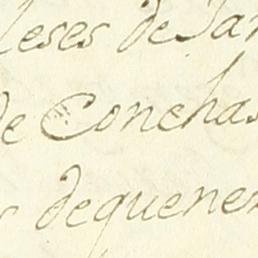 leses de Jan
de Conchas
dequener